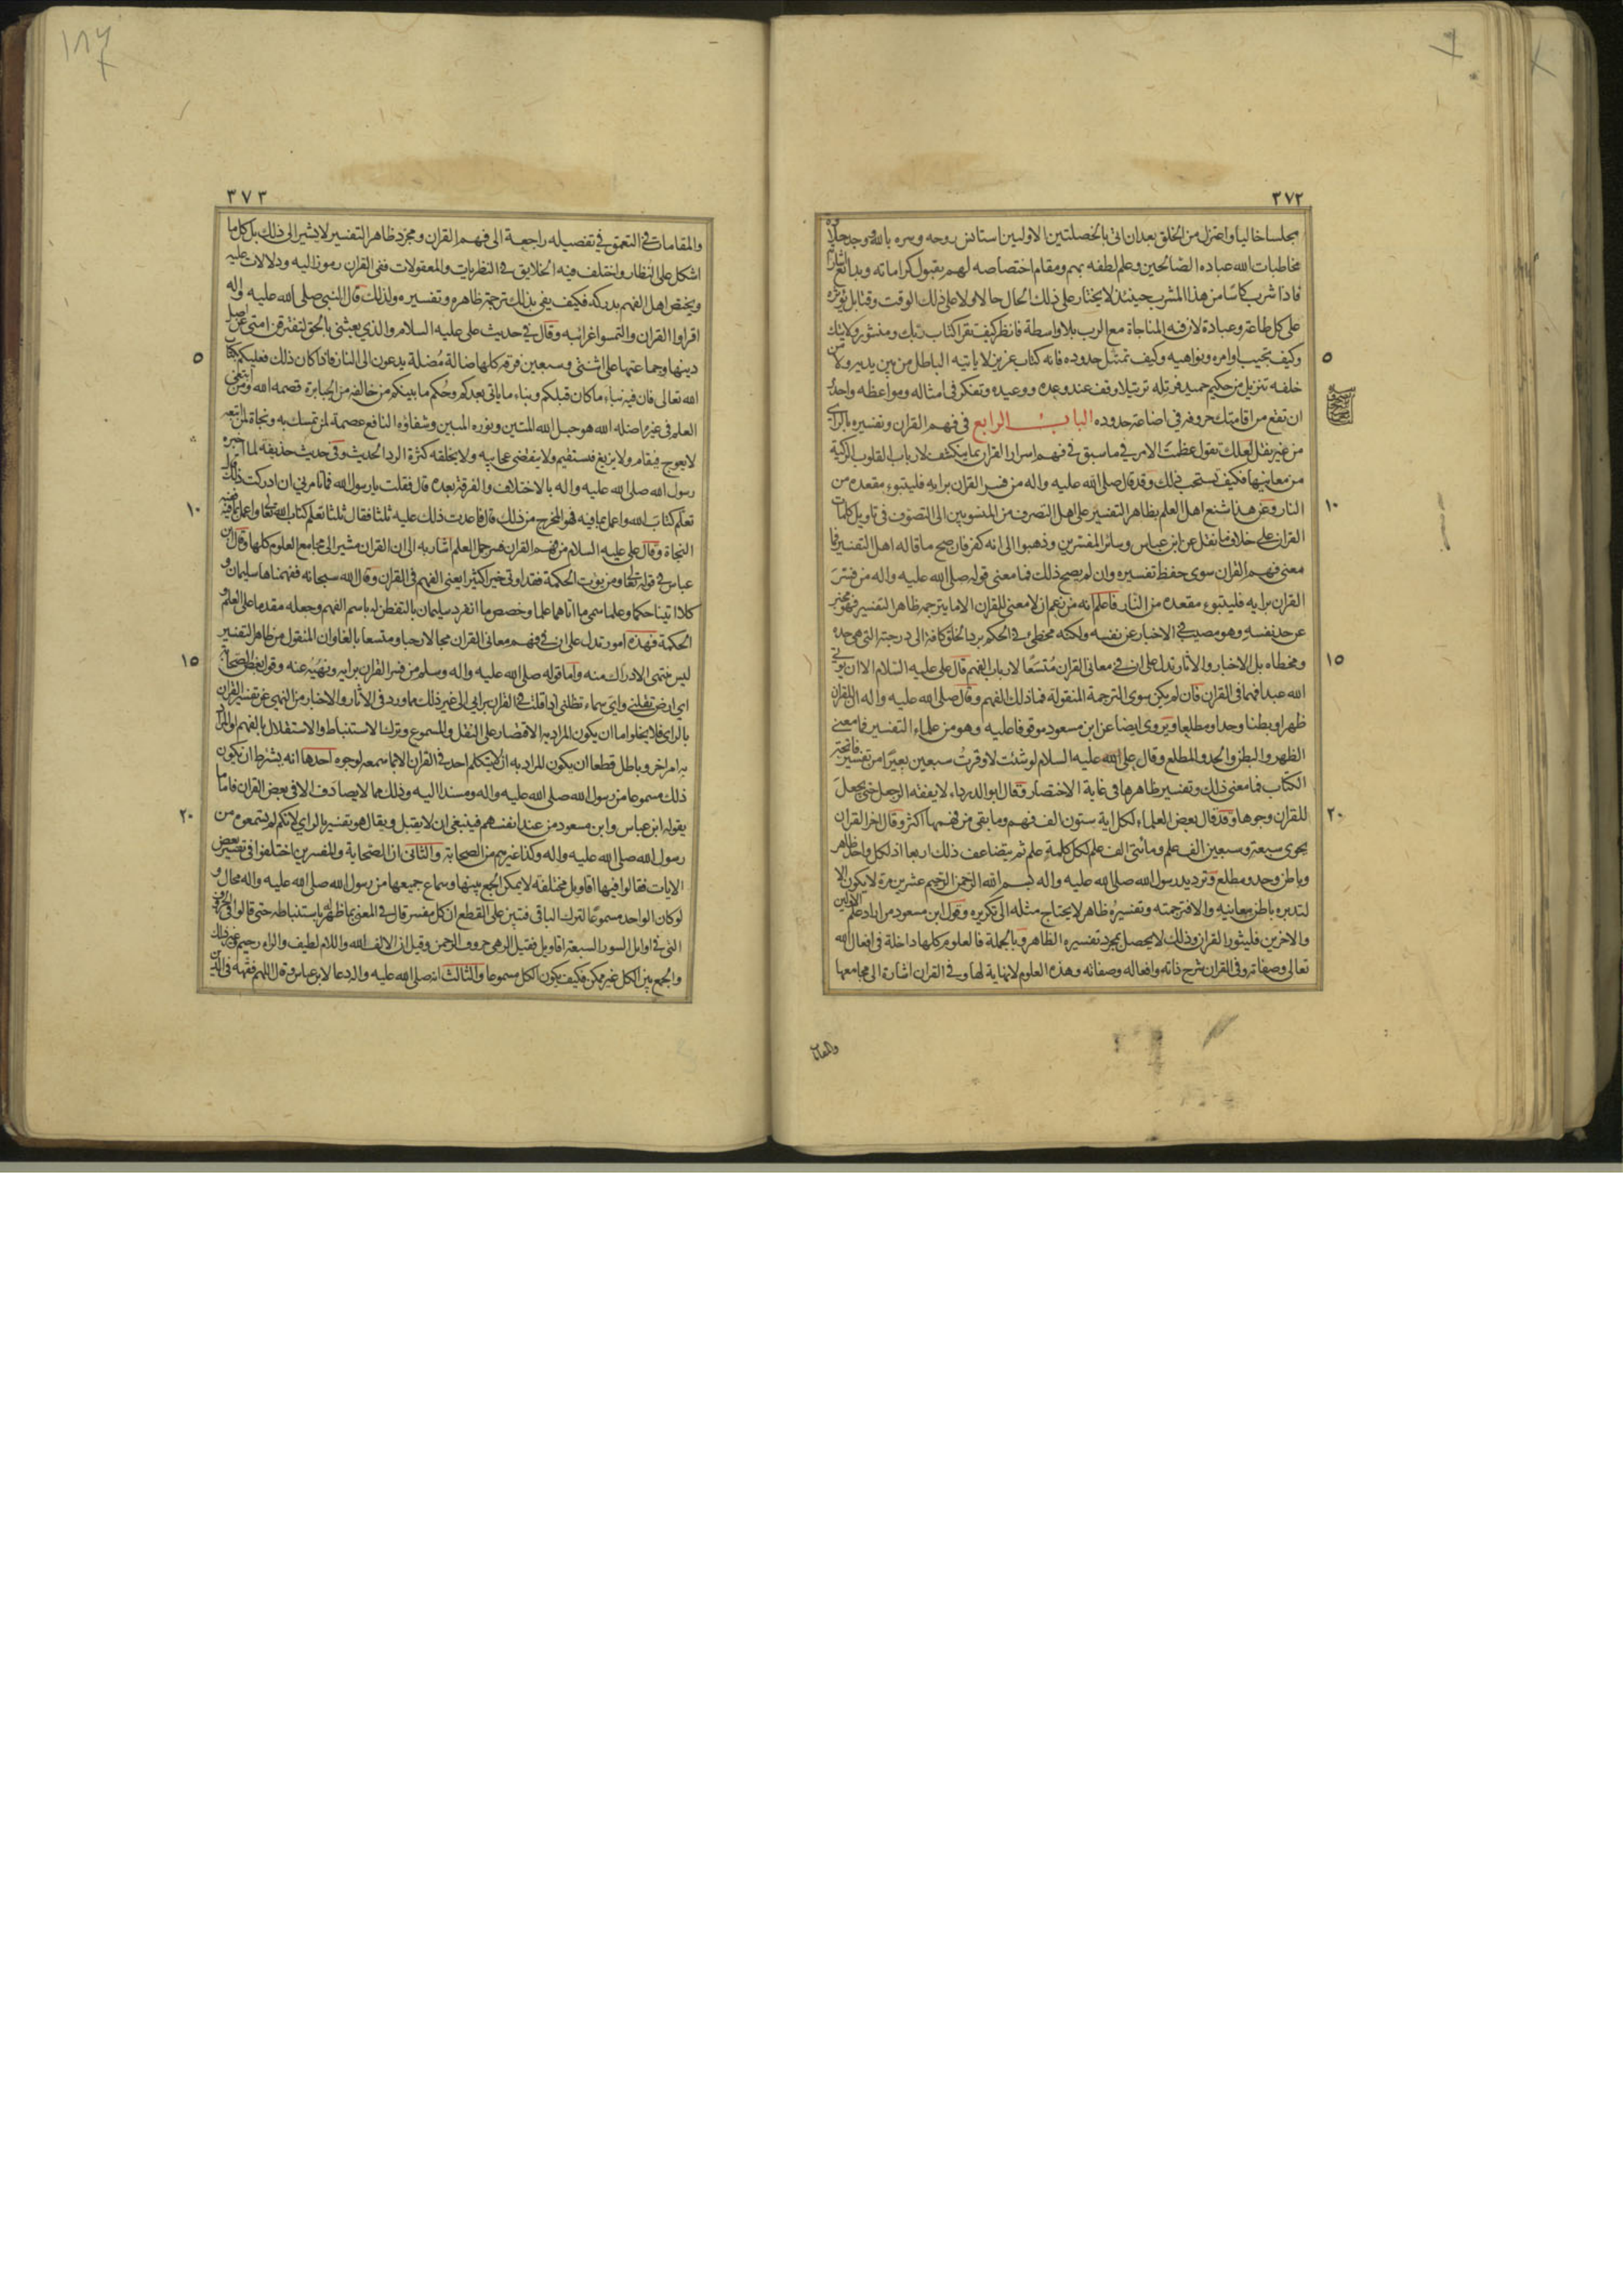 ٣٧٢
مجلسا خاليا واعتزل من الخلق بعد ان اتى بالخصلتين الاوليين استانس روحه وسره بالله ووجد حلاوة
مخاطبات الله عباده الصالحين وعلم لطفه بهم ومقام اختصاصه لهم بقبول كراماته وبدائع اشاراته
فاذا شرب كاسا من هذا المشرب حينئذ لا يختار على ذلك الحال حالا ولا على ذلك الوقت وقتا بل يؤثره
على كل طاعة وعبادة لان فيه المناجاة مع الرب بلا واسطة فانظر كيف تقرا كتاب ربك ومنشور ولايتك
٥
وكيف تجيب اوامره ونواهيه وكيف تمتثل حدوده فانه كتاب عزيز لا ياتيه الباطل من بين يديه ولا من
خلفه تنزيل من حكيم حميد فرتله ترتيلا وقف عند وعده ووعيده وتفكر في امثاله ومواعظه واحذر
ان تقع من اقامتك حروفه في اضاعة حدوده الباب الرابع في فهم القران وتفسيره بالراى
من غير نقل لعلك تقول عظمت الامر في ما سبق في فهم اسرار القران بما ينكشف لارباب القلوب الزكية
من معانيها فكيف يستحب ذلك وقد قال صلى الله عليه واله من فسر القران برايه فليتبوء مقعده من
١٠
النار وعن هذا شنع اهل العلم بظاهر التفسير على اهل التصرف من المنسوبين الى التصوف في تاويل كلمات
القران على خلاف ما نقل عن ابن عباس وسائر المفسرين وذهبوا الى انه كفر فان صح ما قاله اهل التفسير فما
معنى فهم القران سوى حفظ تفسيره وان لم يصح ذلك فما معنى قوله صلى الله عليه واله من فسر
القران برايه فليتبوء مقعده من النار فاعلم انه من زعم ان لا معنى للقران الا ما يترجمه ظاهر التفسير فهو مخبر
عن حد نفسه وهو مصيب في الاخبار عن نفسه ولكنه مخطئ في الحكم برد الخلق كافة الى درجته التى هى حده
١٥
ومحطاه بل الاخبار والاثار تدل على ان في معانى القران متسعا لارباب الفهم قال على عليه السلام الا ان يؤتى
الله عبدا فهما في القران فان لم يكن سوى الترجمة المنقولة فما ذلك الفهم وقال صلى الله عليه واله ان للقران
ظهرا وبطنا وحدا ومطلعا ويروى ايضا عن ابن مسعود موقوفا عليه وهو من علماء التفسير فما معنى
الظهر والبطن والحد والمطلع وقال على عليه السلام لو شئت لاوقرت سبعين بعيرا من تفسير فاتحة
الكتاب فما معنى ذلك وتفسير ظاهرها في غاية الاختصار وقال ابو الدرداء لا يفقه الرجل حتى يجعل
٢٠
للقران وجوها وقد قال بعض العلماء لكل اية ستون الف فهم وما بقى من فهمها اكثر وقال اخر القران
يحوى سبعة وسبعين الف علم ومائتى الف علم لكل كلمة علم ثم يتضاعف ذلك اربعا اذ لكل واحد ظاهر
وباطن وحد ومطلع وترديد رسول الله صلى الله عليه واله بسم الله الرحمن الرحيم عشرين مرة لا يكون الا
لتدبره باطن معانيه والا فترجمته وتفسيره ظاهر لا يحتاج مثله الى تكريره وقول ابن مسعود من اراد علم الاولين
والاخرين فليثور القران وذلك لا يحصل بمجرد تفسيره الظاهر وبالجملة فالعلوم كلها داخلة في افعال الله
تعالى وصفاته وفي القران شرح ذاته وافعاله وصفاته وهذه العلوم لا نهاية لها وفي القران اشارة الى مجامعها
والمقامات
٣٧٣
والمقامات في التعمق في تفصيله راجعة الى فهم القران ومجرد ظاهر التفسير لا يشير الى ذلك بل كل ما
اشكل على النظار واختلف فيه الخلايق في النظريات والمعقولات ففى القران رموز اليه ودلالات عليه
ويختص اهل الفهم بدركه فكيف يفى بذلك ترجمة ظاهره وتفسيره ولذلك قال النبى صلى الله عليه واله
اقراوا القران والتمسوا غرائبه وقال في حديث على عليه السلام والذي بعثنى بالحق لتفترقن امتى عن اصل
٥
دينها وجماعتها على اثنتى وسبعين فرقة كلها ضالة مضلة يدعون الى النار فاذا كان ذلك فعليكم بكتاب
الله تعالى فان فيه نباء ما كان قبلكم ونباء ما ياتى بعدكم وحكم ما بينكم من خالفه من الجبابرة قصمه الله ومن ابتغى
العلم في غيره اضله الله هو حبل الله المتين ونوره المبين وشفاؤه النافع عصمة لمن تمسك به ونجاة لمن تبعه
لا يعوج فيقام ولا يزيغ فستقيم ولا ينقضى عجايبه ولا يخلقه كثرة الرد الحديث وفى حديث حذيفة لما اخبره
رسول الله صلى الله عليه واله بالاختلاف والفرقة بعده قال فقلت يا رسول الله فما تامرني ان ادركت ذلك قال
١٠
تعلم كتاب الله واعمل بما فيه فهو المخرج من ذلك قال فاعدت ذلك عليه ثلثا فقال ثلثا تعلم كتاب الله تعالى واعمل بما فيه ففيه
النجاة وقال على عليه السلام من فهم القران فسر جمل العلم اشار به الى ان القران مشير الى مجامع العلوم كلها وقال ابن
عباس في قوله تعالى ومن يؤت الحكمة فقد اوتى خيرا كثيرا يعنى الفهم في القران وقال الله سبحانه ففهمناها سليمان و
كلا اتينا حكما وعلما سمى ما اتاهما علما وخصص ما انفرد سليمان بالتفطن له باسم الفهم وجعله مقدما على العلم و
الحكمة فهذه امور تدل على ان في فهم معانى القران مجالا رحبا ومتسعا بالغا وان المنقول من ظاهر التفسير
١٥
ليس منتهى الادراك منه واما قوله صلى الله عليه واله وسلم من فسر القران برايه ونهيه عنه وقول بعض الصحابة
اى ارض تقلنى واى سماء تظلنى اذا قلت في القران برايى الى غير ذلك مما ورد في الاثار والاخبار من النهى عن تفسير القران
بالراى فلا يخلو اما ان يكون المراد به الاقتصار على النقل والمسموع وترك الاستنباط والاستقلال بالفهم او المراد
به امر اخر وباطل قطعا ان يكون المراد به ان لا يتكلم احد في القران الا بما سمعه لوجوه احدها انه يشترط ان يكون
ذلك مسموعا من رسول الله صلى الله عليه واله ومسندا اليه وذلك مما لا يصادف الا في بعض القران فاما ما
٢٠
يقوله ابن عباس وابن مسعود من عند انفسهم فينبغى ان لا يقبل ويقال هو تفسير بالراي لانكم لم تسمعوه من
رسول الله صلى الله عليه واله وكذا غيرهم من الصحابة والثانى ان الصحابة والمفسرين اختلفوا في تفسير بعض
الايات فقالوا فيها اقاويل مختلفة لا يمكن الجمع بينها وسماع جميعها من رسول الله صلى الله عليه واله محال و
لو كان الواحد مسموعا لترك الباقى فتبين على القطع ان كل مفسر قال في المعنى بما ظهر له باستنباطه حتى قالوا في الحروف
التى في اوايل السور السبعة اقاويل فقيل الر هى حروف الرحمن وقيل ان الالف الله واللام لطيف والراء رحيم غير ذلك
والجمع بين الكل غير ممكن فكيف يكون الكل مسموعا والثالث انه صلى الله عليه واله دعا لابن عباس وقال اللهم فقهه في الدين